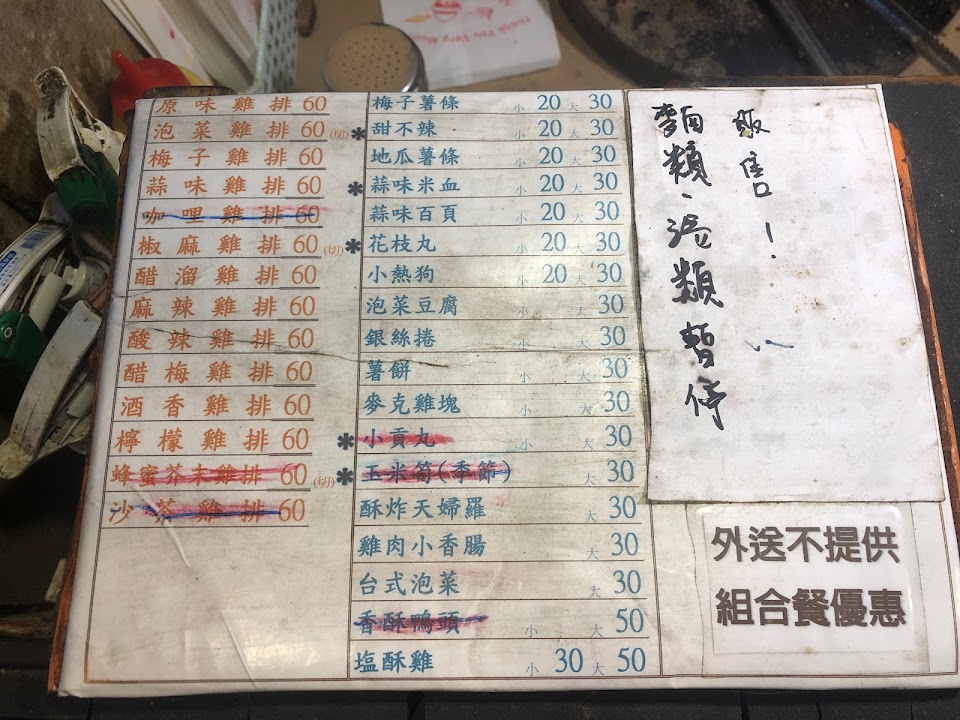 Thank You Very Much
原味雞排 60
泡菜雞排 60 (切)
梅子雞排 60
蒜味雞排 60
咖哩雞排 60
椒麻雞排 60 (切)
醋溜雞排 60
麻辣雞排 60
酸辣雞排 60
醋梅雞排 60
酒香雞排 60
檸檬雞排 60
蜂蜜芥末雞排 60 (切)
沙茶雞排 60
梅子薯條 小 20 大 30
*甜不辣 小 20 大 30
地瓜薯條 小 20 大 30
*蒜味米血 小 20 大 30
蒜味百頁 小 20 大 30
*花枝丸 小 20 大 30
小熱狗 小 20 大 30
泡菜豆腐 小 大 30
銀絲捲 小 大 30
薯餅 小 大 30
麥克雞塊 小 大 30
*小貢丸 小 大 30
*玉米筍(季節) 大 30
酥炸天婦羅 大 30
雞肉小香腸 大 30
台式泡菜 大 30
香酥鴨頭 小 大 50
塩酥雞 小 30 大 50
麵類、湯類暫停
販售!
外送不提供
組合餐優惠